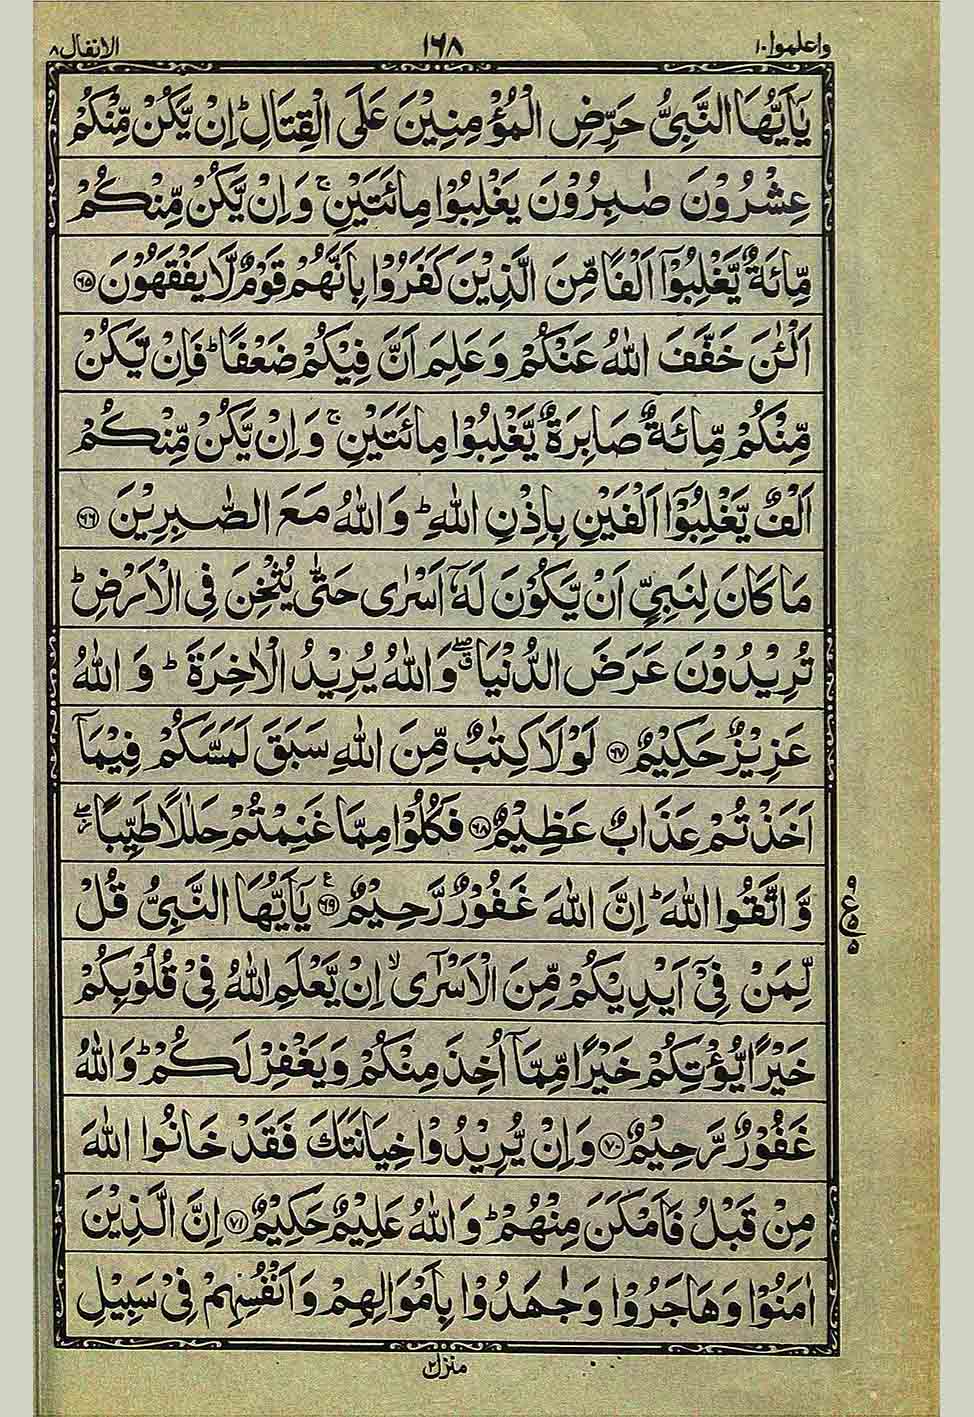 واعلموا ١٠
١٦٨
الانفال ٨
يٰۤاَيُّهَا النَّبِيُّ حَرِّضِ الْمُؤْمِنِيْنَ عَلَى الْقِتَالِ ؕ اِنْ يَّكُنْ مِّنْكُمْ
عِشْرُوْنَ صٰبِرُوْنَ يَغْلِبُوْا مِائَتَيْنِ ۚ وَاِنْ يَّكُنْ مِّنْكُمْ
مِّائَةٌ يَّغْلِبُوْۤا اَلْفًا مِّنَ الَّذِيْنَ كَفَرُوْا بِاَنَّهُمْ قَوْمٌ لَّا يَفْقَهُوْنَ ۝۶۵
اَلْـٰٔنَ خَفَّفَ اللّٰهُ عَنْكُمْ وَعَلِمَ اَنَّ فِيْكُمْ ضَعْفًا ؕ فَاِنْ يَّكُنْ
مِّنْكُمْ مِّائَةٌ صَابِرَةٌ يَّغْلِبُوْا مِائَتَيْنِ ۚ وَاِنْ يَّكُنْ مِّنْكُمْ
اَلْفٌ يَّغْلِبُوْۤا اَلْفَيْنِ بِاِذْنِ اللّٰهِ ؕ وَاللّٰهُ مَعَ الصّٰبِرِيْنَ ۝۶۶
مَا كَانَ لِنَبِيٍّ اَنْ يَّكُوْنَ لَهٗۤ اَسْرٰى حَتّٰى يُثْخِنَ فِى الْاَرْضِ ؕ
تُرِيْدُوْنَ عَرَضَ الدُّنْيَا ۖ ق وَاللّٰهُ يُرِيْدُ الْاٰخِرَةَ ؕ وَاللّٰهُ
عَزِيْزٌ حَكِيْمٌ ۝۶۷ لَوْلَا كِتٰبٌ مِّنَ اللّٰهِ سَبَقَ لَمَسَّكُمْ فِيْمَاۤ
اَخَذْتُمْ عَذَابٌ عَظِيْمٌ ۝۶۸ فَكُلُوْا مِمَّا غَنِمْتُمْ حَلٰلًا طَيِّبًا ۖ ز
وَّاتَّقُوا اللّٰهَ ؕ اِنَّ اللّٰهَ غَفُوْرٌ رَّحِيْمٌ ۝۶۹ ع يٰۤاَيُّهَا النَّبِيُّ قُلْ
لِّمَنْ فِيْۤ اَيْدِيْكُمْ مِّنَ الْاَسْرٰٓى ۙ اِنْ يَّعْلَمِ اللّٰهُ فِيْ قُلُوْبِكُمْ
خَيْرًا يُّؤْتِكُمْ خَيْرًا مِّمَّاۤ اُخِذَ مِنْكُمْ وَيَغْفِرْ لَكُمْ ؕ وَاللّٰهُ
غَفُوْرٌ رَّحِيْمٌ ۝۷۰ وَاِنْ يُّرِيْدُوْا خِيَانَتَكَ فَقَدْ خَانُوا اللّٰهَ
مِنْ قَبْلُ فَاَمْكَنَ مِنْهُمْ ؕ وَاللّٰهُ عَلِيْمٌ حَكِيْمٌ ۝۷۱ اِنَّ الَّذِيْنَ
اٰمَنُوْا وَهَاجَرُوْا وَجٰهَدُوْا بِاَمْوَالِهِمْ وَاَنْفُسِهِمْ فِيْ سَبِيْلِ
منزل ٢